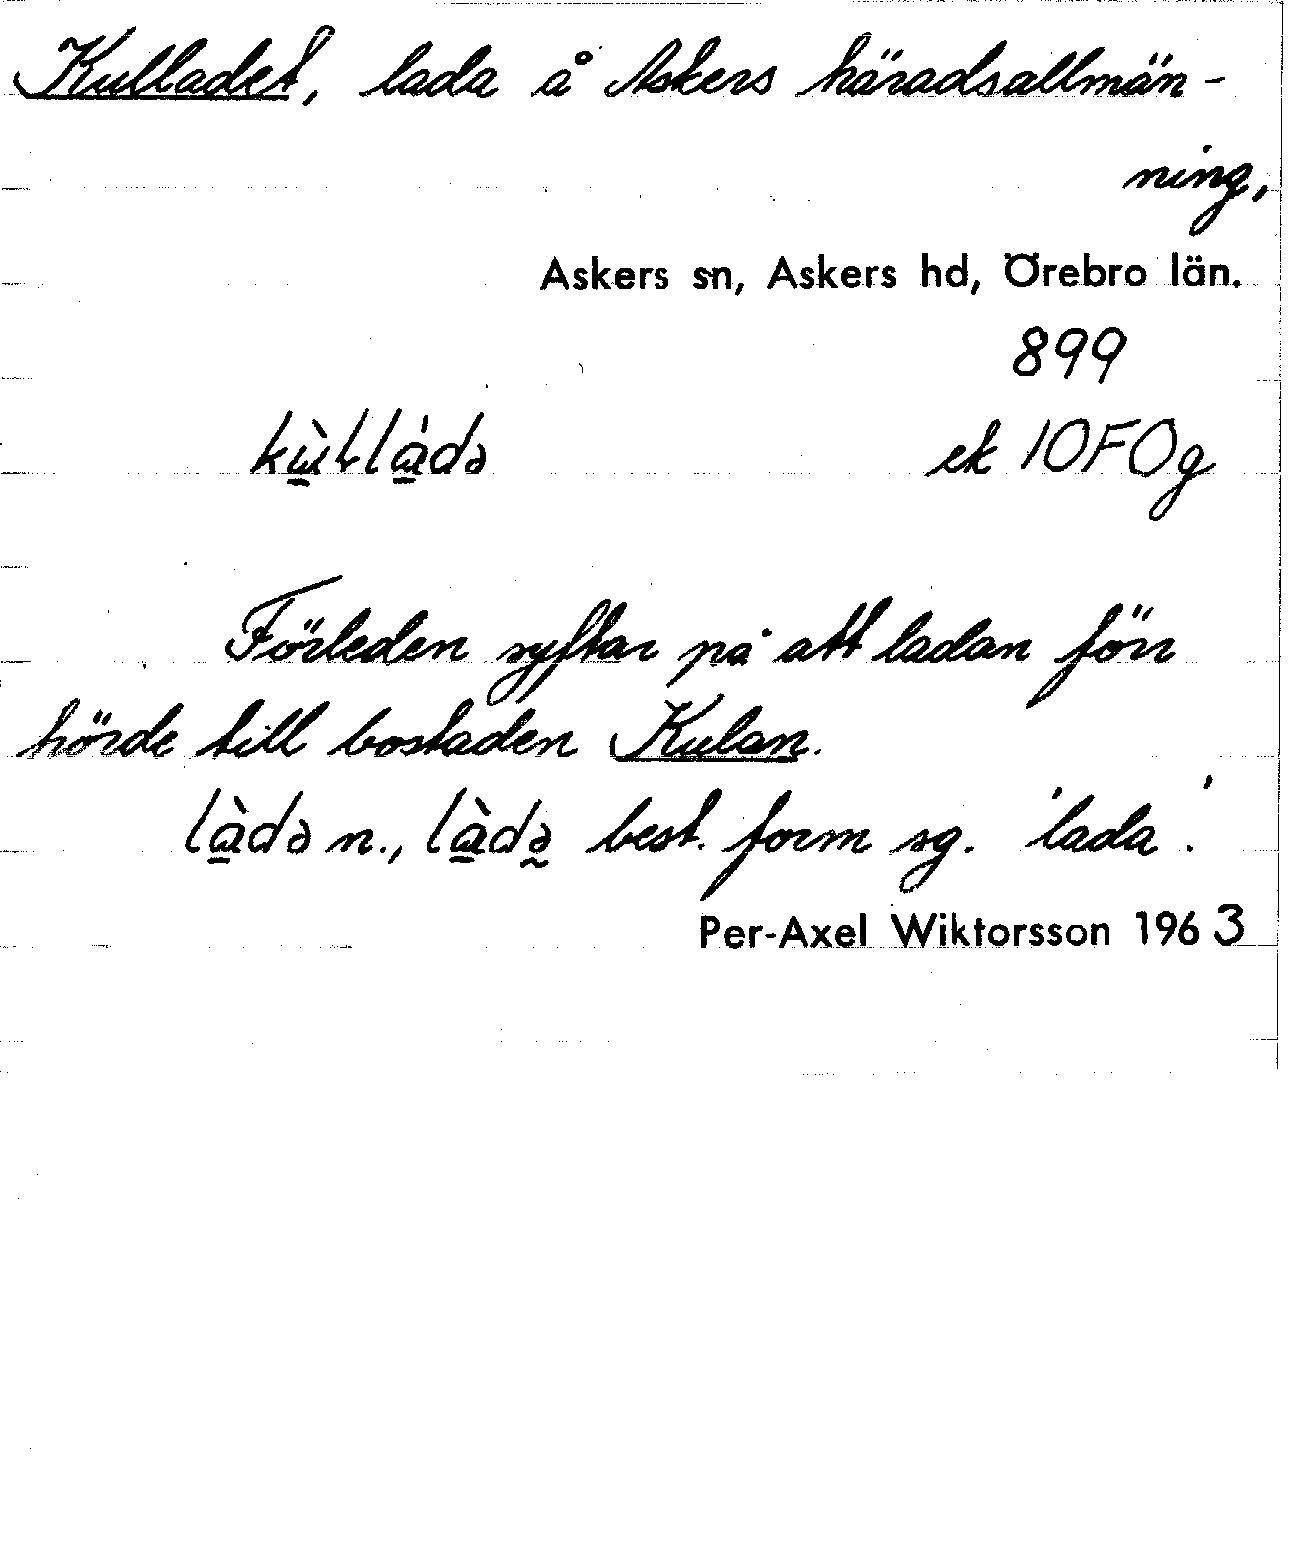 Kulladet, lada å Askers häradsallmän-
ning,
Askers sn, Askers hd, Örebro län.
899
ek 10F0g
Förleden syftar på att ladan förr
hörde till bostaden Kulan.
làdə n., làdə̰ best. form sg. 'lada'.
Per-Axel Wiktorsson 1963